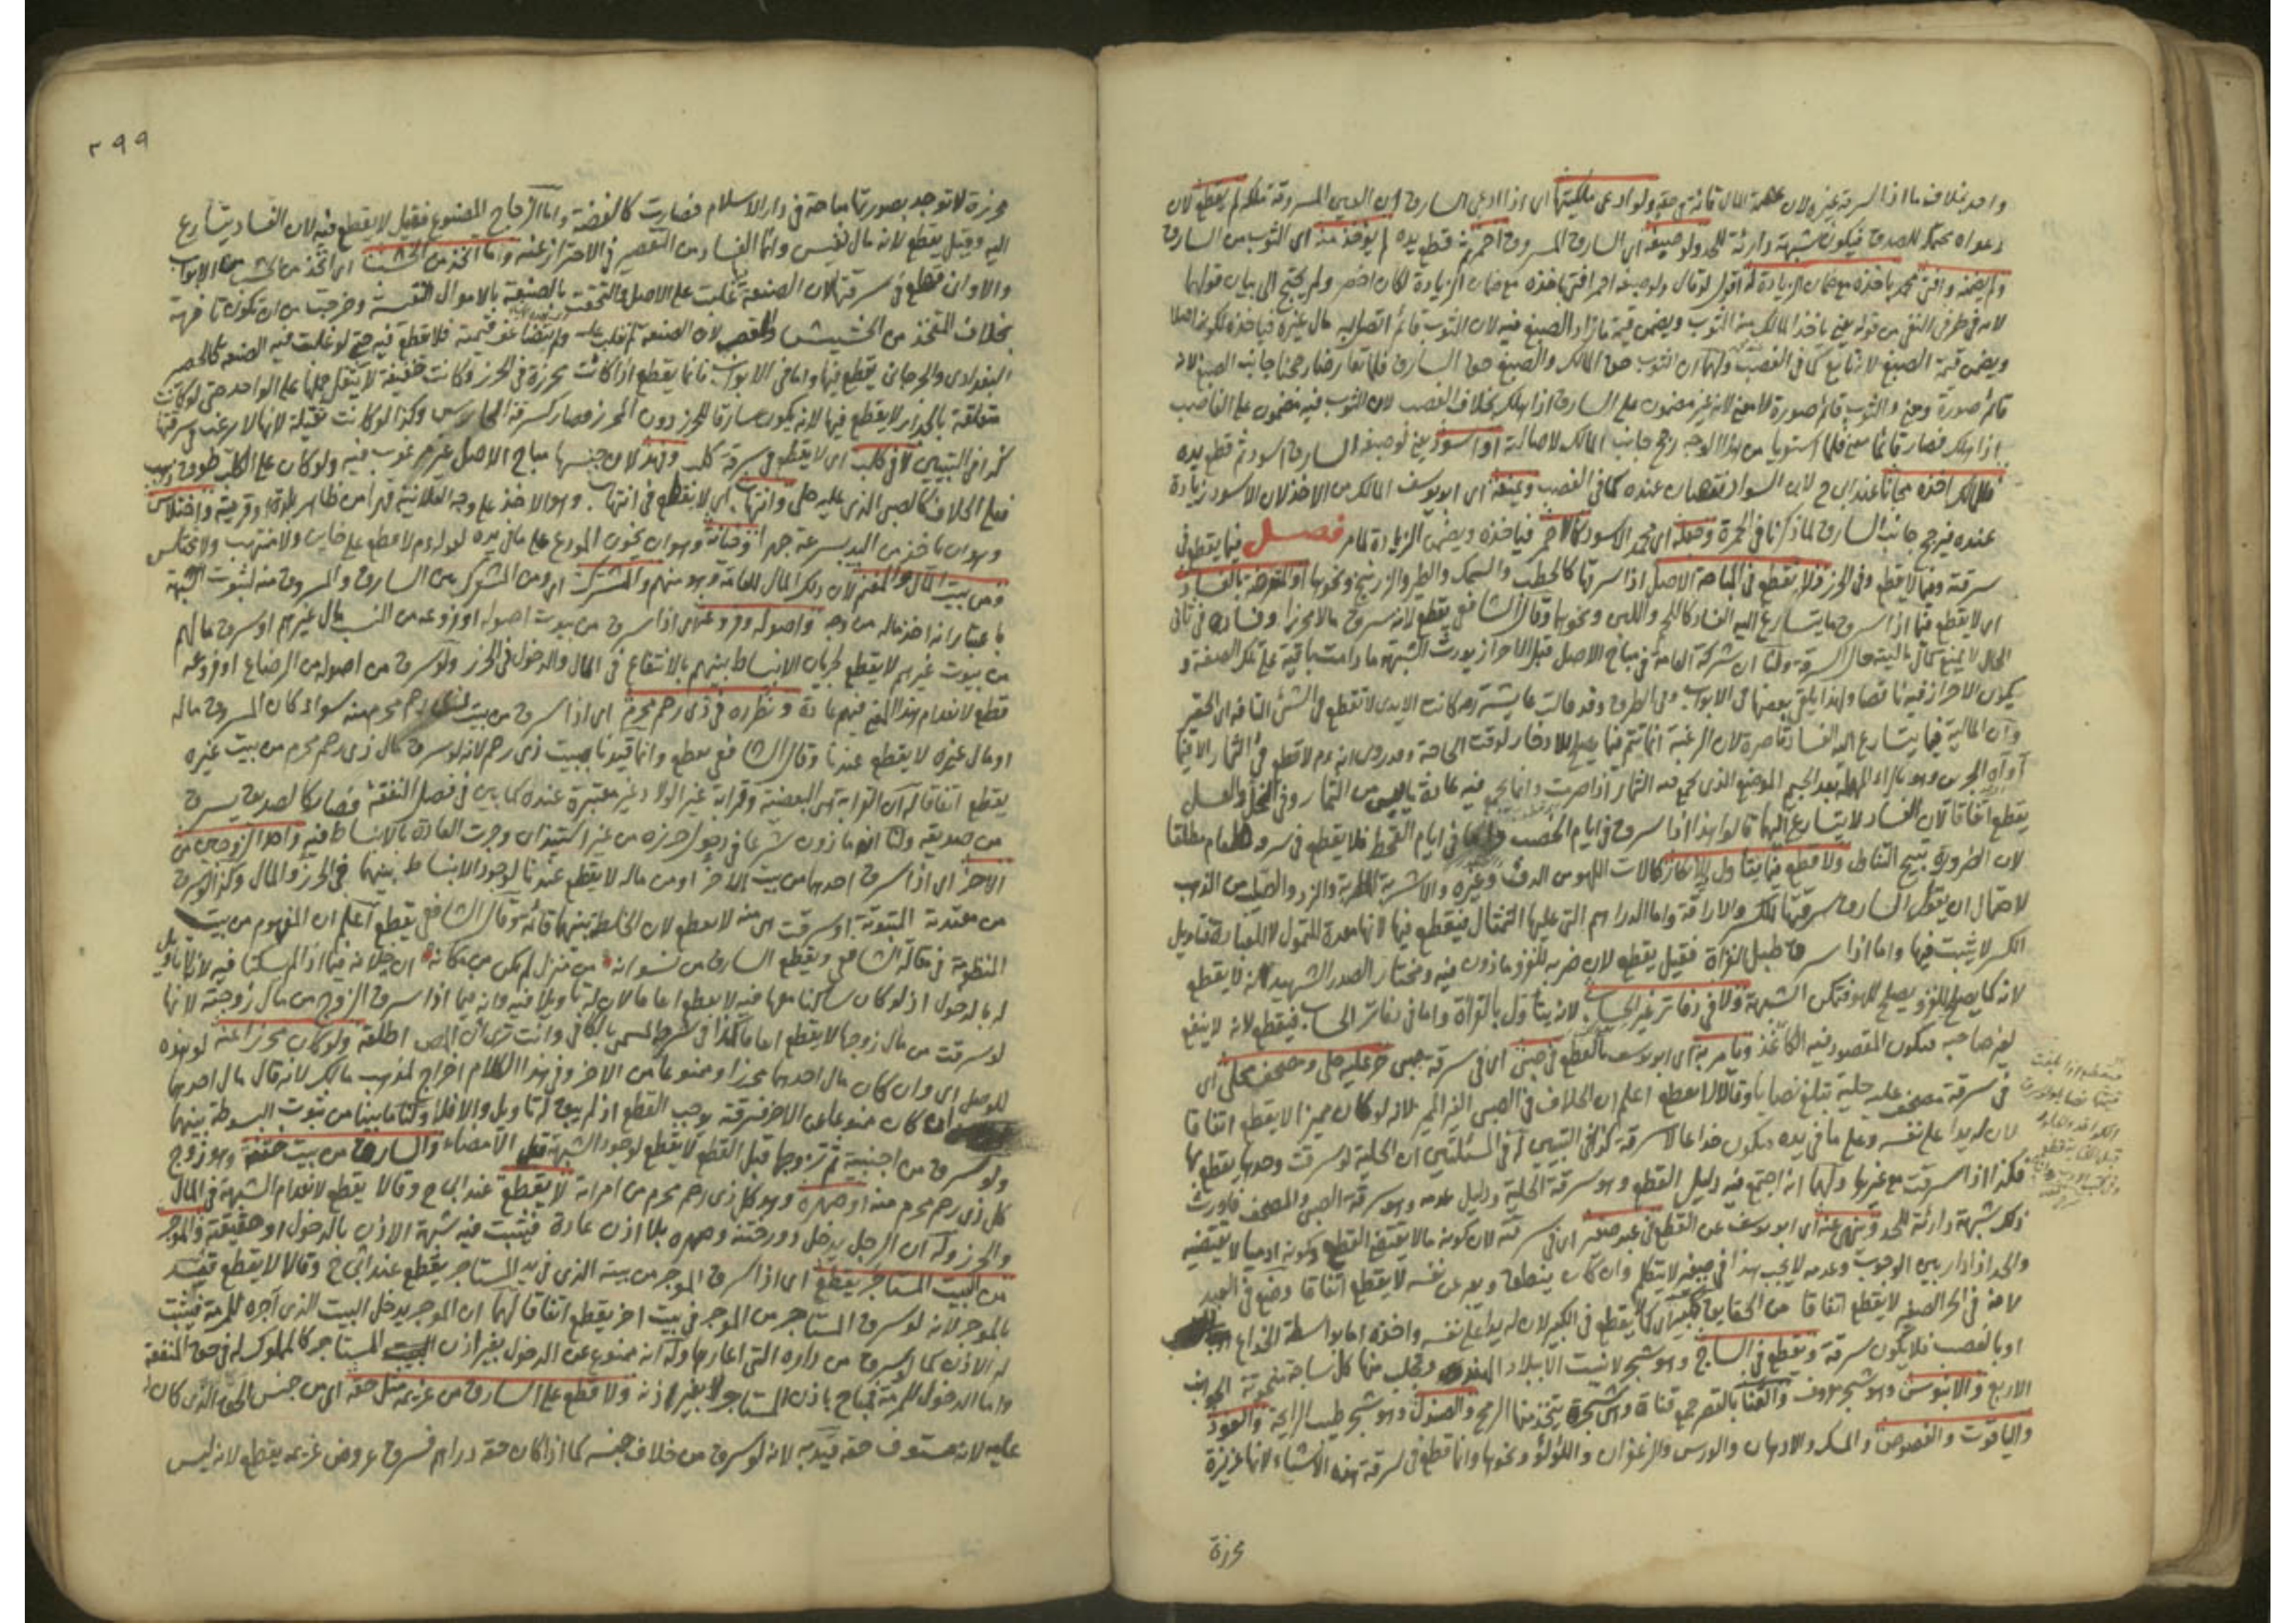 واحد بخلاف ما اذا سرقه غيره لان عصمة المال قائمة في حقه ولو ادعى ملكيتها اى اذا ادعى السارق ان العين المسروقة ملكه لم يقطع لان
دعواه محتمل للصدق فيكون شبهة دارئة للحد ولو صبغه اى السارق المسروق احمر ثم قطع يده لم يؤخذ منه اى الثوب من السارق
ولم يضمنه وافتى محمد باخذه مع ضمان الزيادة له اقول لو قال ولو صبغه احمر افتى باخذه مع ضمان الزيادة لكان اخصر ولم يحتج الى بيان قولهما
لانه في طرفى النفى من قوله يعنى ياخذ المالك منه الثوب ويضمن قيمة ما زاد الصبغ فيه لان الثوب قائم اتصل به مال غيره فياخذه لكونه اصلا
ويضمن قيمة الصبغ لانه تابع كما في الغصب ولهما ان الثوب حق المالك والصبغ حق السارق فلما تعارضا رجحنا جانب الصبغ لانه
قائم صورة ومعنى والثوب قائم صورة لا معنى لانه غير مضمون على السارق اذا هلك بخلاف الغصب لان الثوب فيه مضمون على الغاصب
اذا هلك فصار قائما معنى فلما استويا من هذا الوجه رجح جانب المالك لاصالته او اسود يعنى لو صبغه السارق اسود ثم قطع يده
فللمالك اخذه مجانا عند ابى ح لان السواد نقصان عنده كما في الغصب ويمنعه اى ابو يوسف المالك من الاخذ لان الاسود زيادة
عنده فيرجح جانب السارق لما ذكرنا في الحمرة وجعله اى محمد الاسود كالاحمر فياخذه ويضمن الزيادة لما مر فصل فيما يقطع في
سرقته وفيما لا يقطع وفي الحرز فلا يقطع في المباحة الاصل اذا سرقها كالحطب والسمك والطير والزرنيخ ونحوها او المتعرضة بالفساد
اى لا يقطع فيما اذا سرق ما يتسارع اليه الفساد كاللحم واللبن ونحوها وقال الشافعى يقطع لانه سرق مالا محرزا وفساده في ثانى
الحال لا يمنع كمال ماليته حال السرقة ولنا ان شركة العامة في مباح الاصل قبل الاحراز يورث الشبهة ما دامت باقية على تلك الصفة و
يكون الاحراز فيه ناقصا ولهذا يلقى بعضها في الابواب وفي الطرق وقد قالت عايشة رضه كانت الايدى لا تقطع في الشئ التافه اى الحقير
وان المالية فيما يتسارع اليه الفساد قاصرة لان الرغبة انما تتم فيما يصلح للادخار لوقت الحاجة وقد روى انه عم لا قطع في الثمار الا فيما
آواه الجرين وهو بالراء المهملة بعد الجيم الموضع الذى يجمع فيه الثمار اذا صرمت وانما يجمع فيه عادة يابس من الثمار وفي النخل والعسل
يقطع اتفاقا لان الفساد لا يتسارع اليهما قالوا هذا اذا سرق في ايام الخصب واما في ايام القحط فلا يقطع في سرقة طعام مطلقا
لان الضرورة تبيح التناول ولا قطع فيما يتأول للانكار كالات اللهو من الدف وغيره والاشربة المطربة والنرد والصليب من الذهب
لاحتمال ان يقول السارق سرقتها للكسر والاراقة واما الدراهم التى عليها التمثال فيقطع فيها لانها معدة للتمول لا للعبادة فتاويل
الكسر لا يثبت فيها واما اذا سرق طبل الغزاة فقيل يقطع لان ضربه للغزو ماذون فيه ومختار الصدر الشهيد انه لا يقطع
لانه كما يصلح للغزو يصلح للهو فتمكن الشبهة ولا في دفاتر غير الحساب لانه يتأول بالقراة واما في دفاتر الحساب فيقطع لانه لا ينتفع
لغير صاحبه فيكون المقصود فيه الكاغذ ويامر به اى ابو يوسف بالقطع في صبى اى في سرقة صبى حر عليه حلى ومصحف محلى اى
في سرقة مصحف عليه حلية تبلغ نصابا وقالا لا يقطع اعلم ان الخلاف في الصبى الغير المميز لانه لو كان مميزا لا يقطع اتفاقا
لان له يدا على نفسه وعلى ما في يده فيكون خداعا لا سرقة كذا في التبيين له في المسئلتين ان الحلية لو سرقت وحدها يقطع بها
فكذا اذا سرقت مع غيرها ولهما انه اجتمع فيه دليل القطع وهو سرقة الحلية ودليل عدمه وهو سرقة الصبى والمصحف فاورث
ذلك شبهة دارئة للحد وينهى عنه اى ابو يوسف عن القطع في عبد صغير اى في سرقته لان كونه مالا يقتضى القطع وكونه ادميا لا يقتضيه
والحد اذا دار بين الوجوب وعدمه لا يجب هذا في صبى لا يتكلم وان كان ينطق ويعبر عن نفسه لا يقطع اتفاقا وضع في العبد
لانه في الحر الصغير لا يقطع اتفاقا من الحقايق ككبير اى كما لا يقطع في الكبير لان له يدا على نفسه واخذه اما بواسطة الخداع
او بالغصب فلا يكون سرقة ويقطع في الساج وهو شجر لا ينبت الا ببلاد الهند ويجلب منها كل ساجة منحوتة الجوانب
الاربع والابنوس وهو شجر معروف والقنا بالقصر جمع قناة وهى شجرة يتخذ منها الرمح والصندل وهو شجر طيب الرايحة والعود
والياقوت والفصوص والمسك والادهان والورس والزعفران واللؤلؤ ونحوها وانما قطع في سرقة هذه الاشياء لانها عزيزة
محرزة
٢٩٩
محرزة لا توجد بصورتها مباحة في دار الاسلام فصارت كالفضة واما الزجاج المصنوع فقيل لا يقطع فيه لان الفساد يتسارع
اليه وقيل يقطع لانه مال نفيس وانما الفساد من التقصير في الاحتراز عنه وما اتخذ من الخشب اى اتخذ من الخشب من الابواب
والاوانى فقطع في سرقتها لان الصنعة غلبت على الاصل والتحقت بالصنعة بالاموال النفيسة وخرجت من ان تكون تافهة
بخلاف المتخذ من الحشيش والقصب لان الصنعة لم تغلب عليه ولم يتضاعف قيمته فلا قطع فيه حتى لو غلبت فيه الصنعة كالحصر
البغدادى والجرجانى يقطع فيها واما في الابواب فانما يقطع اذا كانت محرزة في الحرز وكانت خفيفة لا يثقل حملها على الواحد حتى لو كانت
متعلقة بالجدار لا يقطع فيها لانه يكون سارقا للحرز دون المحرز فصار كسرقة الحارس وكذا لو كانت ثقيلة لانها لا يرغب في سرقتها
كذا في التبيين لا في كلب اى لا يقطع في سرقة كلب وفهد لان جنسهما مباح الاصل غير مرغوب فيه ولو كان على الكلب طوق ذهب
فعلى الخلاف كالصبى الذى عليه حلى وانتهاب اى لا يقطع في انتهاب وهو الاخذ على وجه العلانية قهرا من ظاهر بلدة او قرية واختلاس
وهو ان ياخذ من اليد بسرعة جهرا وخيانة وهو ان يخون المودع على ما في يده لقوله عم لا قطع على خاين ولا منتهب ولا مختلس
ومن بيت المال والمغنم لان ذلك المال للعامة وهو منهم والمشترك اى ومن المشترك بين السارق والمسروق منه لثبوت الشبهة
باعتبار انه اخذ ماله من وجه واصوله وفروعه اى اذا سرق من بيوت اصوله او فروعه من النسب مال غيرهم او سرق مالهم
من بيوت غيرهم لا يقطع لجريان الانبساط بينهم بالانتفاع في المال والدخول في الحرز ولو سرق من اصوله من الرضاع او فروعه
قطع لانعدام هذا المعنى فيهم عادة ونطرده في ذى رحم محرم اى اذا سرق من بيت ذى رحم محرم منه سواء كان المسروق ماله
او مال غيره لا يقطع عندنا وقال الشافعى يقطع وانما قيدنا ببيت ذى رحم لانه لو سرق مال ذى رحم محرم من بيت غيره
يقطع اتفاقا له ان القرابة هى البعضية وقرابة غير الولاد غير معتبرة عنده كما بين في فصل النفقة فصار كالصديق يسرق
من صديقه ولنا انه ماذون شرعا في دخول حرزه من غير استيذان وجرت العادة بالانبساط فيه واحد الزوجين من
الاخر اى اذا سرق احدهما من بيت الاخر او من ماله لا يقطع عندنا لوجود الانبساط بينهما في الحرز والمال وكذا لو سرق
من معتدته المبتوتة او سرقت هى منه لا يقطع لان الخلطة بينهما قائمة وقال الشافعى يقطع اعلم ان المفهوم من بيت
المنظومة في مقالة الشافعى ويقطع السارق من نسوانه من منزل لم يكن من مكانه ان خلافه فيما اذا لم يسكنا فيه لانه لا تاويل
له بالدخول اذ لو كان ساكنا معها فيه لا يقطع اجماعا لان له تاويلا فيه وانه فيما اذا سرق الزوج من مال زوجته لانها
لو سرقت من مال زوجها لا يقطع اجماعا كذا في شرطه المسمى بالكافى وانت ترى ان المص اطلقه ولو كان محرزا عنه لو هذه
للوصل اى وان كان مال احدهما محرزا وممنوعا من الاخر وفي هذا الكلام اخراج لمذهب مالك لانه قال مال احدهما
ان كان ممنوعا من الاخر فسرقته يوجب القطع اذ لم يبق له تاويل والا فلا ولنا ما بينا من ثبوت البسوطة بينهما
ولو سرق من اجنبية ثم تزوجها قبل القطع لا يقطع لوجود الشبهة قبل الامضاء والسارق من بيت ختنه وهو زوج
كل ذى رحم محرم منه او صهره وهو كل ذى رحم محرم من امراته لا يقطعه عند ابى ح وقالا يقطع لانعدام الشبهة في المال
والحرز وله ان الرجل يدخل دور ختنه وصهره بلا اذن عادة فيثبت فيه شبهة الاذن بالدخول او حقيقته والموجر
من البيت المستاجر يقطع اى اذا سرق الموجر من بيته الذى في يد المستاجر يقطع عند ابى ح وقالا لا يقطع قيد
بالموجر لانه لو سرق المستاجر من الموجر في بيت اخر يقطع اتفاقا لهما ان الموجر يدخل البيت الذى آجره للمرمة فيثبت
له الاذن كما لو سرق من داره التى اعارها وله انه ممنوع عن الدخول بغير اذن المستاجر كالمملوك له في حق المنفعة
واما الدخول للمرمة فمباح باذن المستاجر لا بغير اذنه ولا قطع على السارق من غريمه مثل حقه اى من جنس الحق الذى كان
عليه لانه مستوف حقه قيد به لانه لو سرق من خلاف جنسه كما اذا كان حقه دراهم فسرق عروض غريمه يقطع لانه ليس